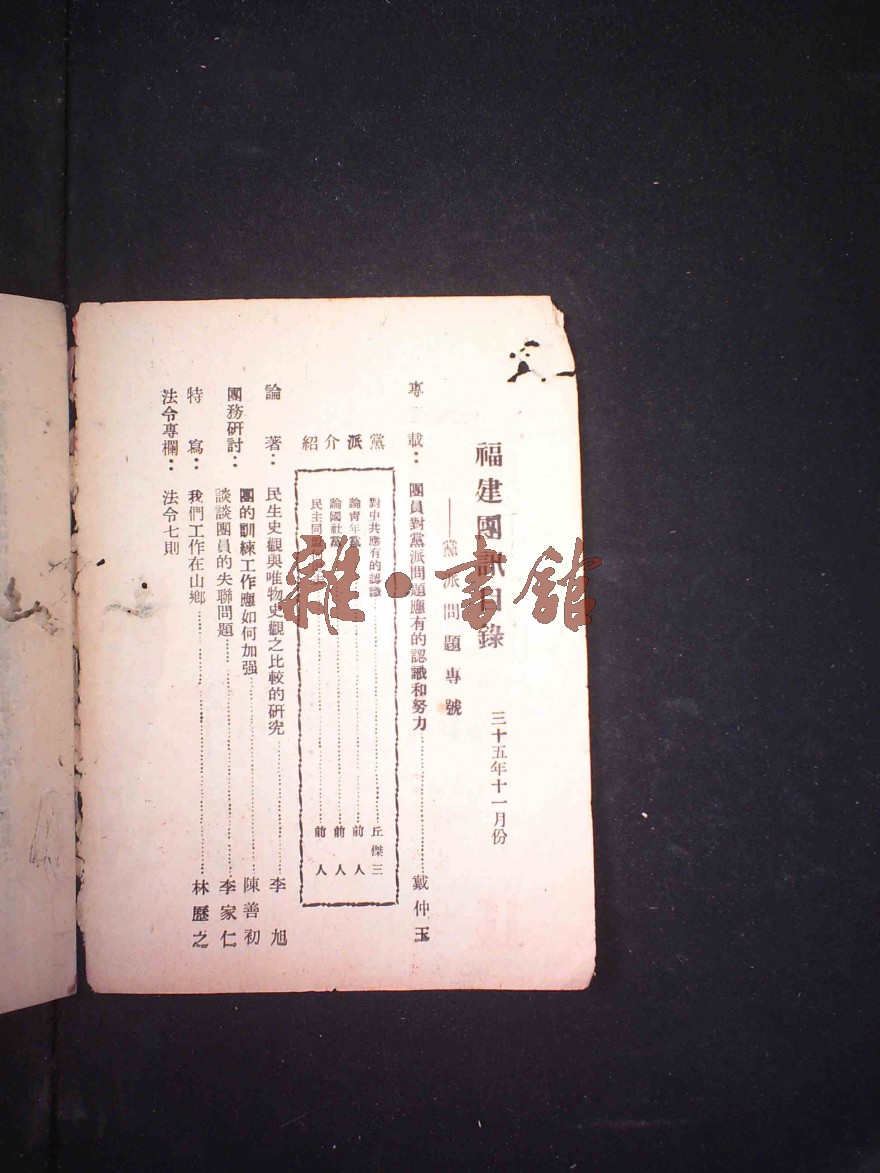 福建團訊目錄
——黨派問題專號
三十五年十一月份
專載：團員對黨派問題應有的認識和努力……戴仲玉
黨派介紹
對中共應有的認識……丘傑三
論青年黨……前人
論國社黨……前人
民主同盟……前人
論著：民生史觀與唯物史觀之比較的研究……李旭
團務研討：團的訓練工作應如何加强……陳善初
談談團員的失聯問題……李家仁
特寫：我們工作在山鄉……林歷之
法令專欄：法令七則
雜·書館